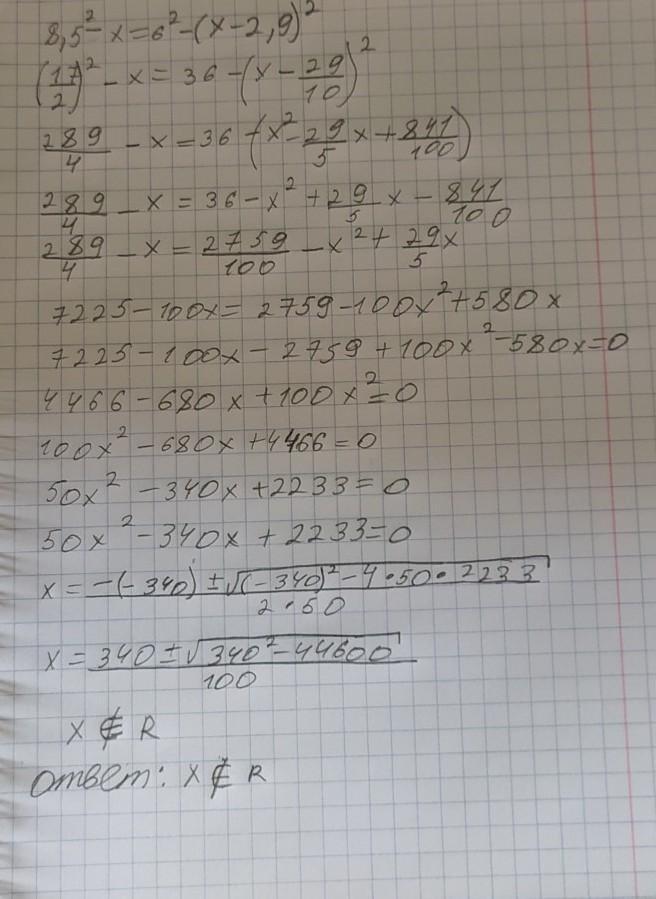 8,5² - x = 6² - (x - 2,9)²
(17/2)² - x = 36 - (x - 29/10)²
289/4 - x = 36 - (x² - 29/5 x + 841/100)
289/4 - x = 36 - x² + 29/5 x - 841/100
289/4 - x = 2759/100 - x² + 29/5 x
7225 - 100x = 2759 - 100x² + 580x
7225 - 100x - 2759 + 100x² - 580x = 0
4466 - 680x + 100x² = 0
100x² - 680x + 4466 = 0
50x² - 340x + 2233 = 0
50x² - 340x + 2233 = 0
x = (-(-340) ± √((-340)² - 4·50·2233))/(2·50)
x = (340 ± √(340² - 44600))/100
x ∉ R
Ответ: x ∉ R